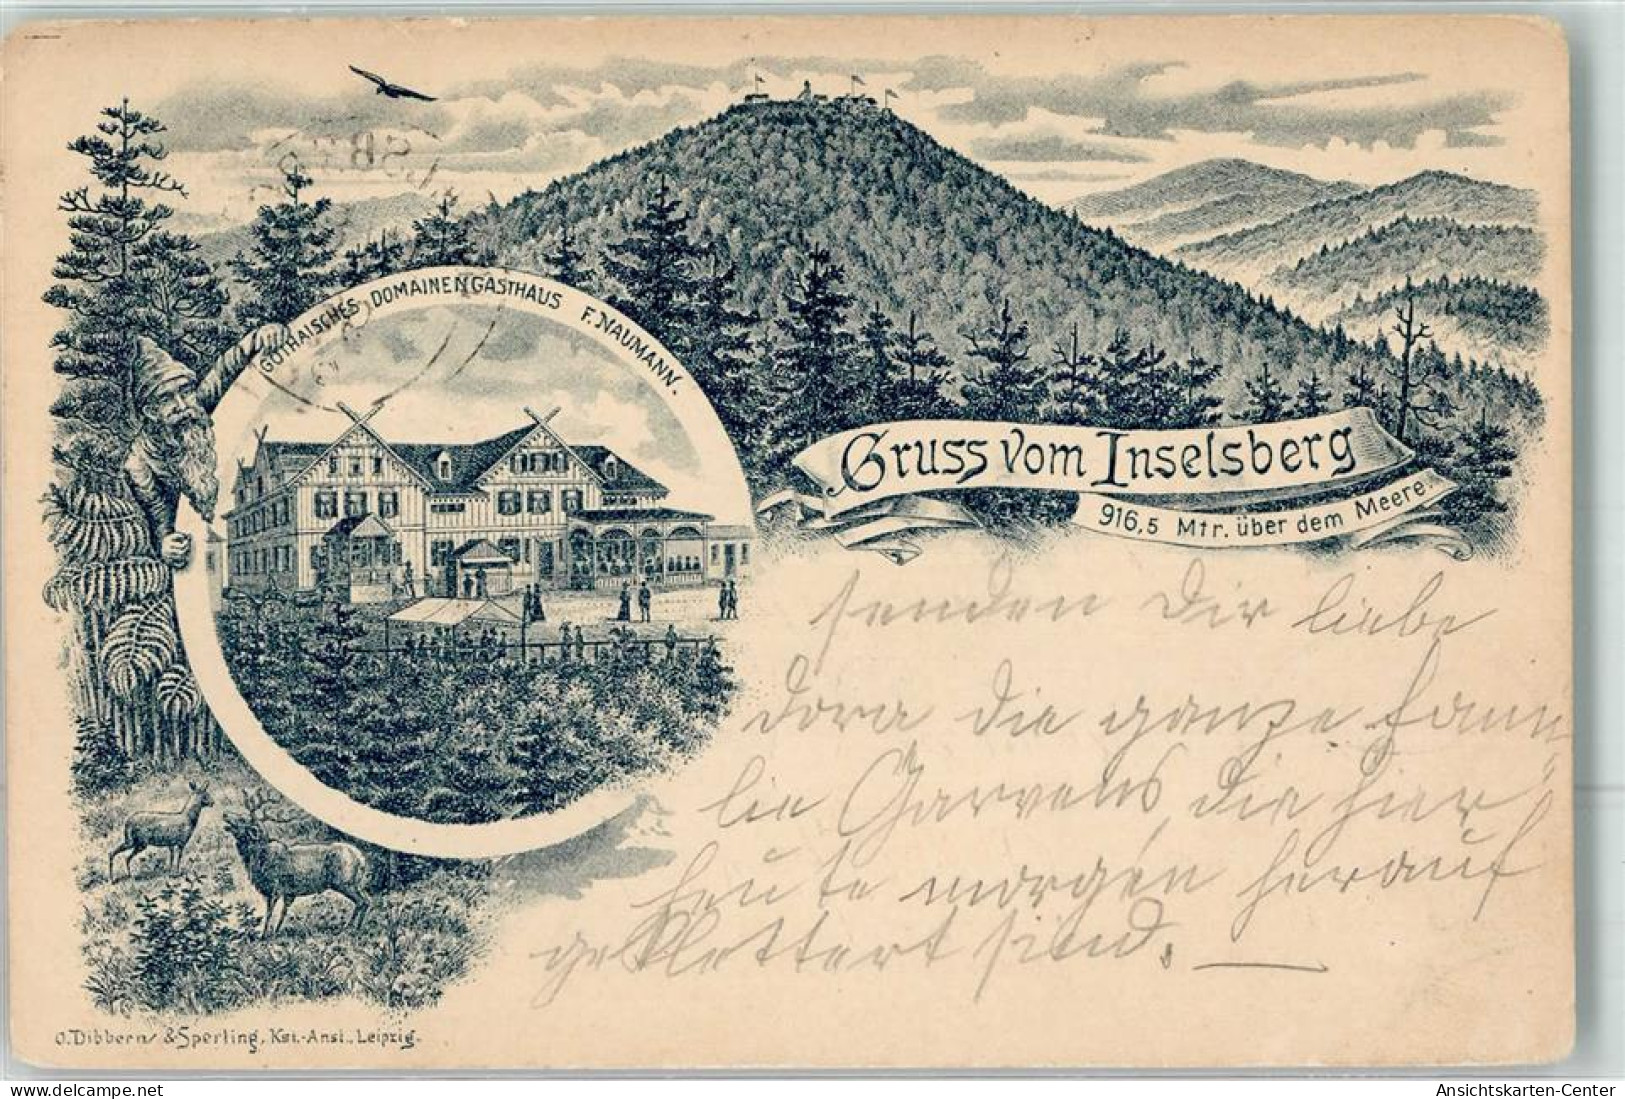 GOTHAISCHES DOMAINENGASTHAUS F. NAUMANN.
Gruss vom Inselsberg
916,5 Mtr. über dem Meere.
senden Dir liebe
Dora die ganze Fami
lie Garvens, die hier
heute morgen herauf
geklettert sind.
O. Dibbern & Sperling, Kst.-Anst., Leipzig.
Ansichtskarten-Center